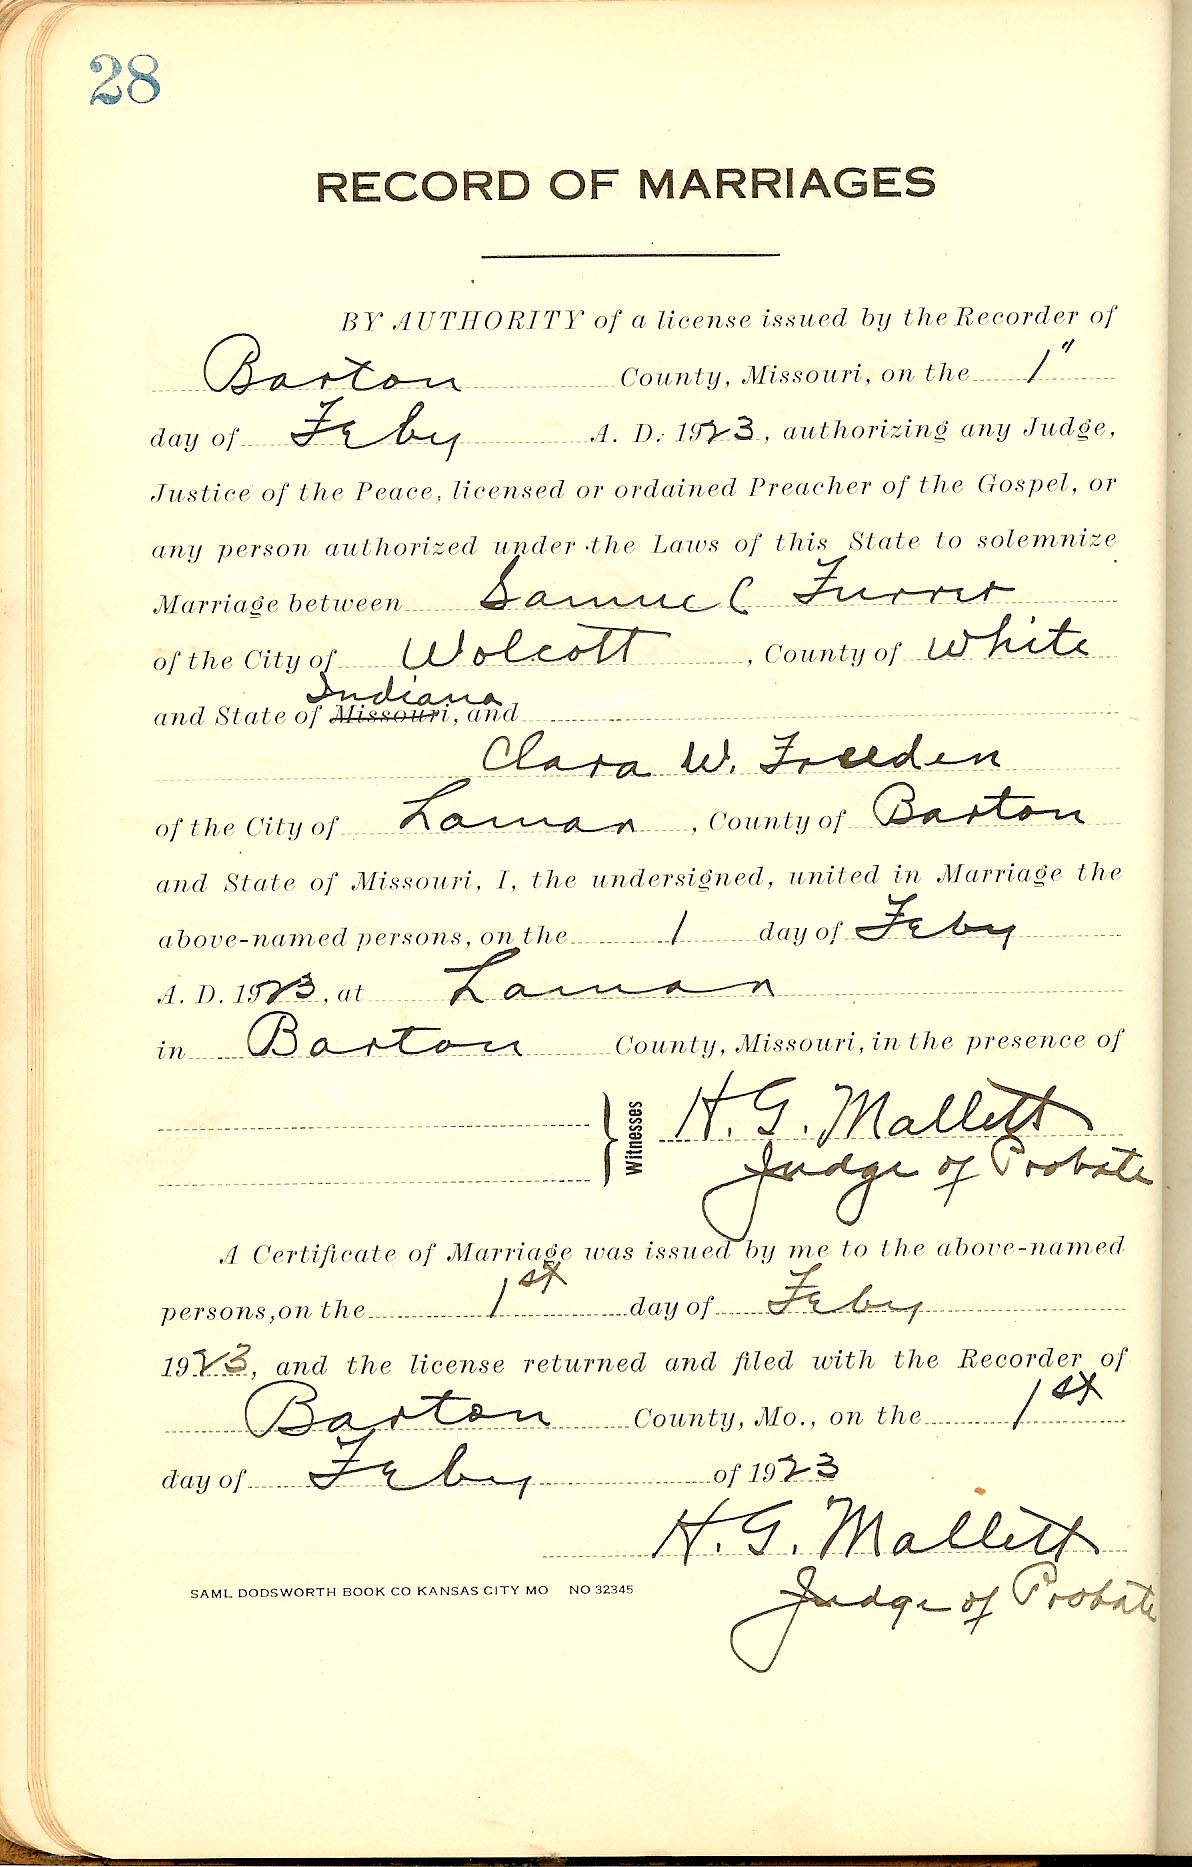 28
RECORD OF MARRIAGES
BY AUTHORITY of a license issued by the Recorder of
Barton County, Missouri, on the 1"
day of Feby A. D. 1923, authorizing any Judge,
Justice of the Peace, licensed or ordained Preacher of the Gospel, or
any person authorized under the Laws of this State to solemnize
Marriage between Samuel Furrer
of the City of Wolcott, County of White
Indiana
and State of Missouri, and
Clara W. Freeden
of the City of Lamar, County of Barton
and State of Missouri, I, the undersigned, united in Marriage the
above-named persons, on the 1 day of Feby
A. D. 1923, at Lamar
in Barton County, Missouri, in the presence of
Witnesses H. G. Mallett
Judge of Probate
A Certificate of Marriage was issued by me to the above-named
persons, on the 1st day of Feby
1923, and the license returned and filed with the Recorder of
Barton County, Mo., on the 1st
day of Feby of 1923
H. G. Mallett
SAML DODSWORTH BOOK CO KANSAS CITY MO NO 32345
Judge of Probate